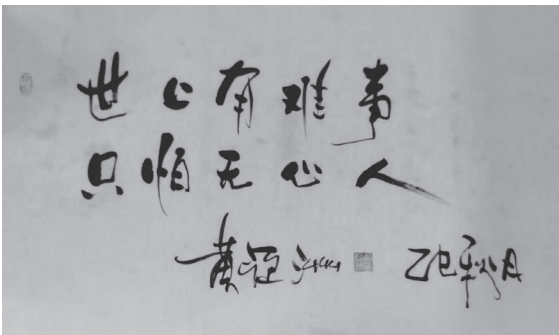 世上有难事
只怕无心人
黄亚洲 乙巳秋月